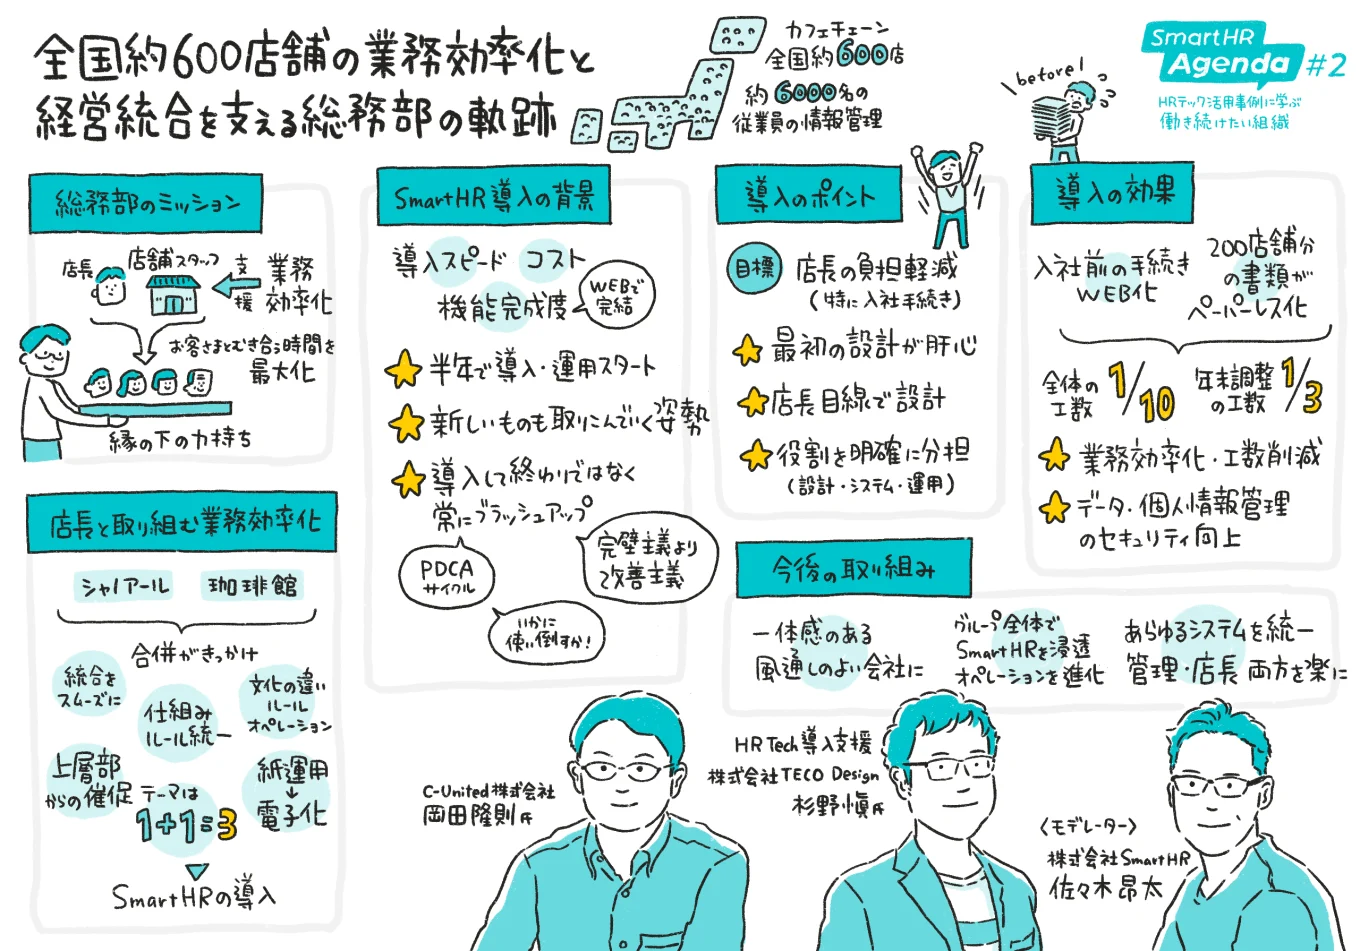 全国約600店舗の業務効率化と
経営統合を支える総務部の軌跡
カフェチェーン
全国約600店
約6000名の
従業員の情報管理
before!
SmartHR
Agenda #2
HRテック活用事例に学ぶ
働き続けたい組織
総務部のミッション
店長
店舗スタッフ
支援
業務
効率化
お客さまとむき合う時間を
最大化
縁の下の力持ち
店長と取り組む業務効率化
シャノアール
珈琲館
合併がきっかけ
統合を
スムーズに
仕組み
ルール統一
文化の違い
ルール
オペレーション
上層部
からの催促
テーマは
1+1=3
紙運用
↓
電子化
SmartHRの導入
SmartHR導入の背景
導入スピード
コスト
機能完成度
WEBで
完結
半年で導入・運用スタート
新しいものも取りこんでいく姿勢
導入して終わりではなく
常にブラッシュアップ
PDCA
サイクル
完璧主義より
改善主義
いかに
使い倒すか!
導入のポイント
目標
店長の負担軽減
(特に入社手続き)
最初の設計が肝心
店長目線で設計
役割を明確に分担
(設計・システム・運用)
導入の効果
入社前の手続き
WEB化
200店舗分
の書類が
ペーパーレス化
全体の
工数
1/10
年末調整
の工数
1/3
業務効率化・工数削減
データ・個人情報管理
のセキュリティ向上
今後の取り組み
一体感のある
風通しのよい会社に
グループ全体で
SmartHRを浸透
オペレーションを進化
あらゆるシステムを統一
管理・店長 両方を楽に
C-United株式会社
岡田隆則氏
HR Tech導入支援
株式会社TECO Design
杉野愼氏
〈モデレーター〉
株式会社SmartHR
佐々木昂太